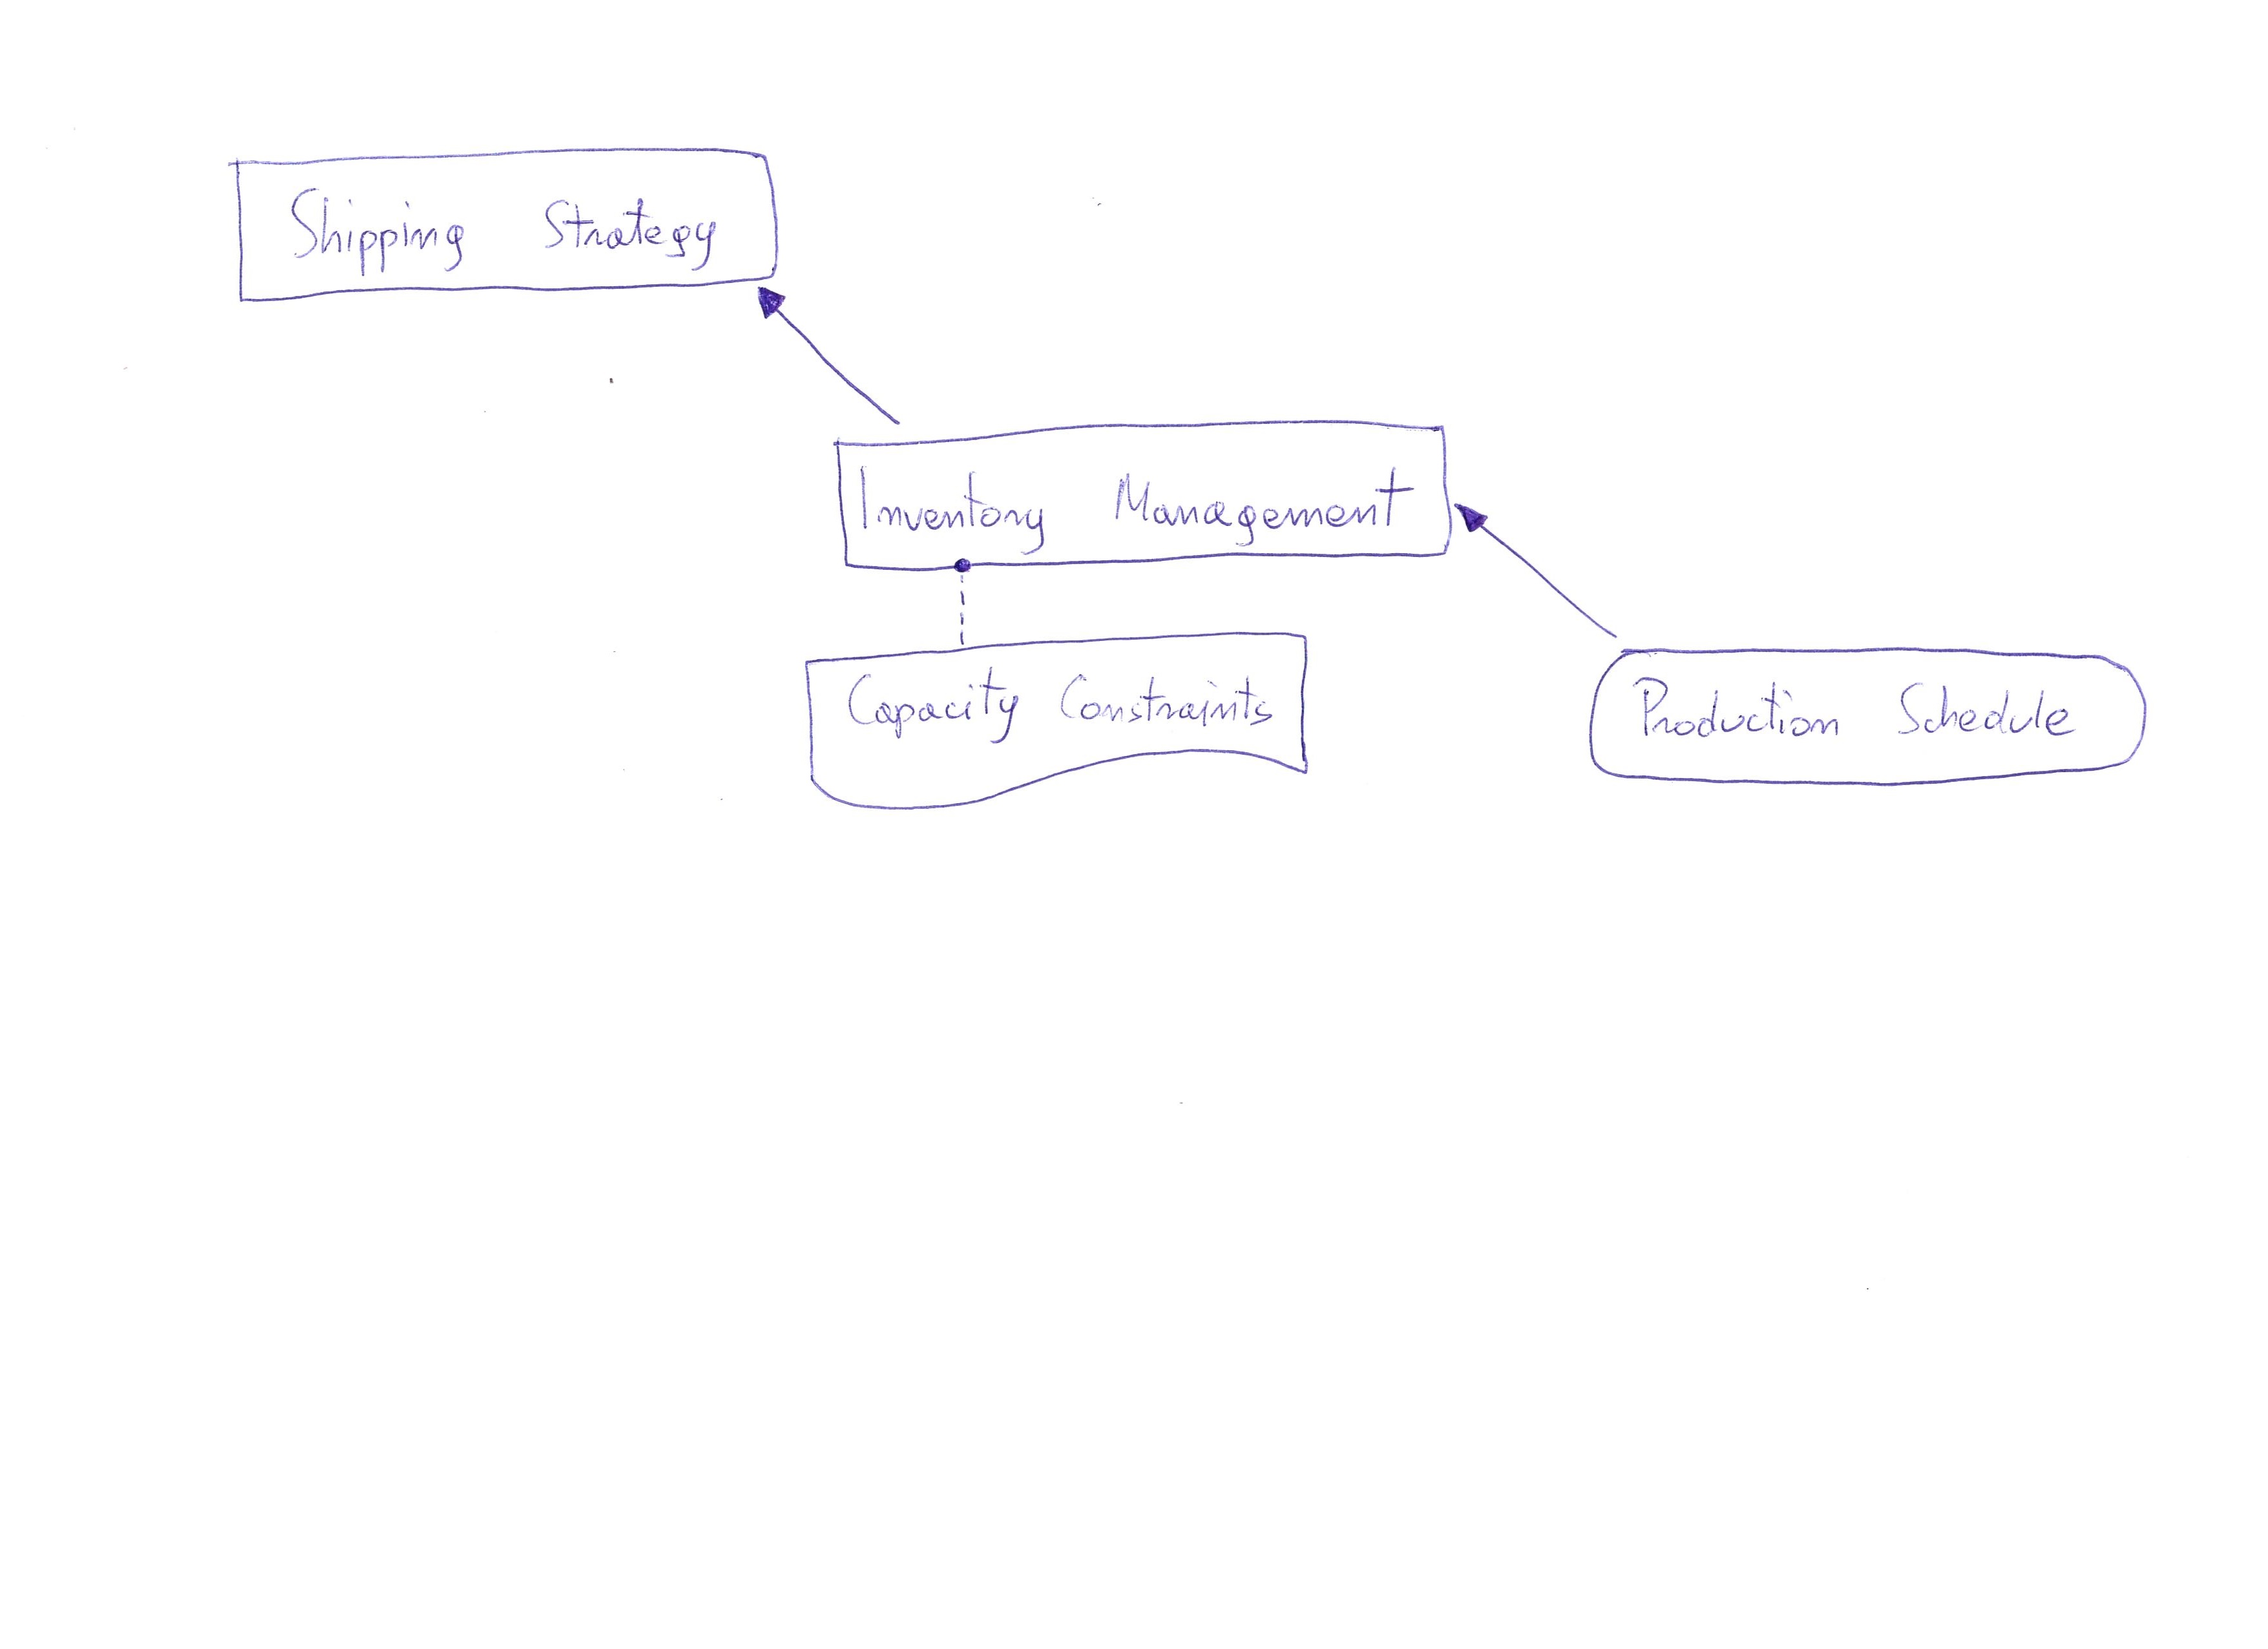 Shipping Strategy
Inventory Management
Capacity Constraints
Production Schedule